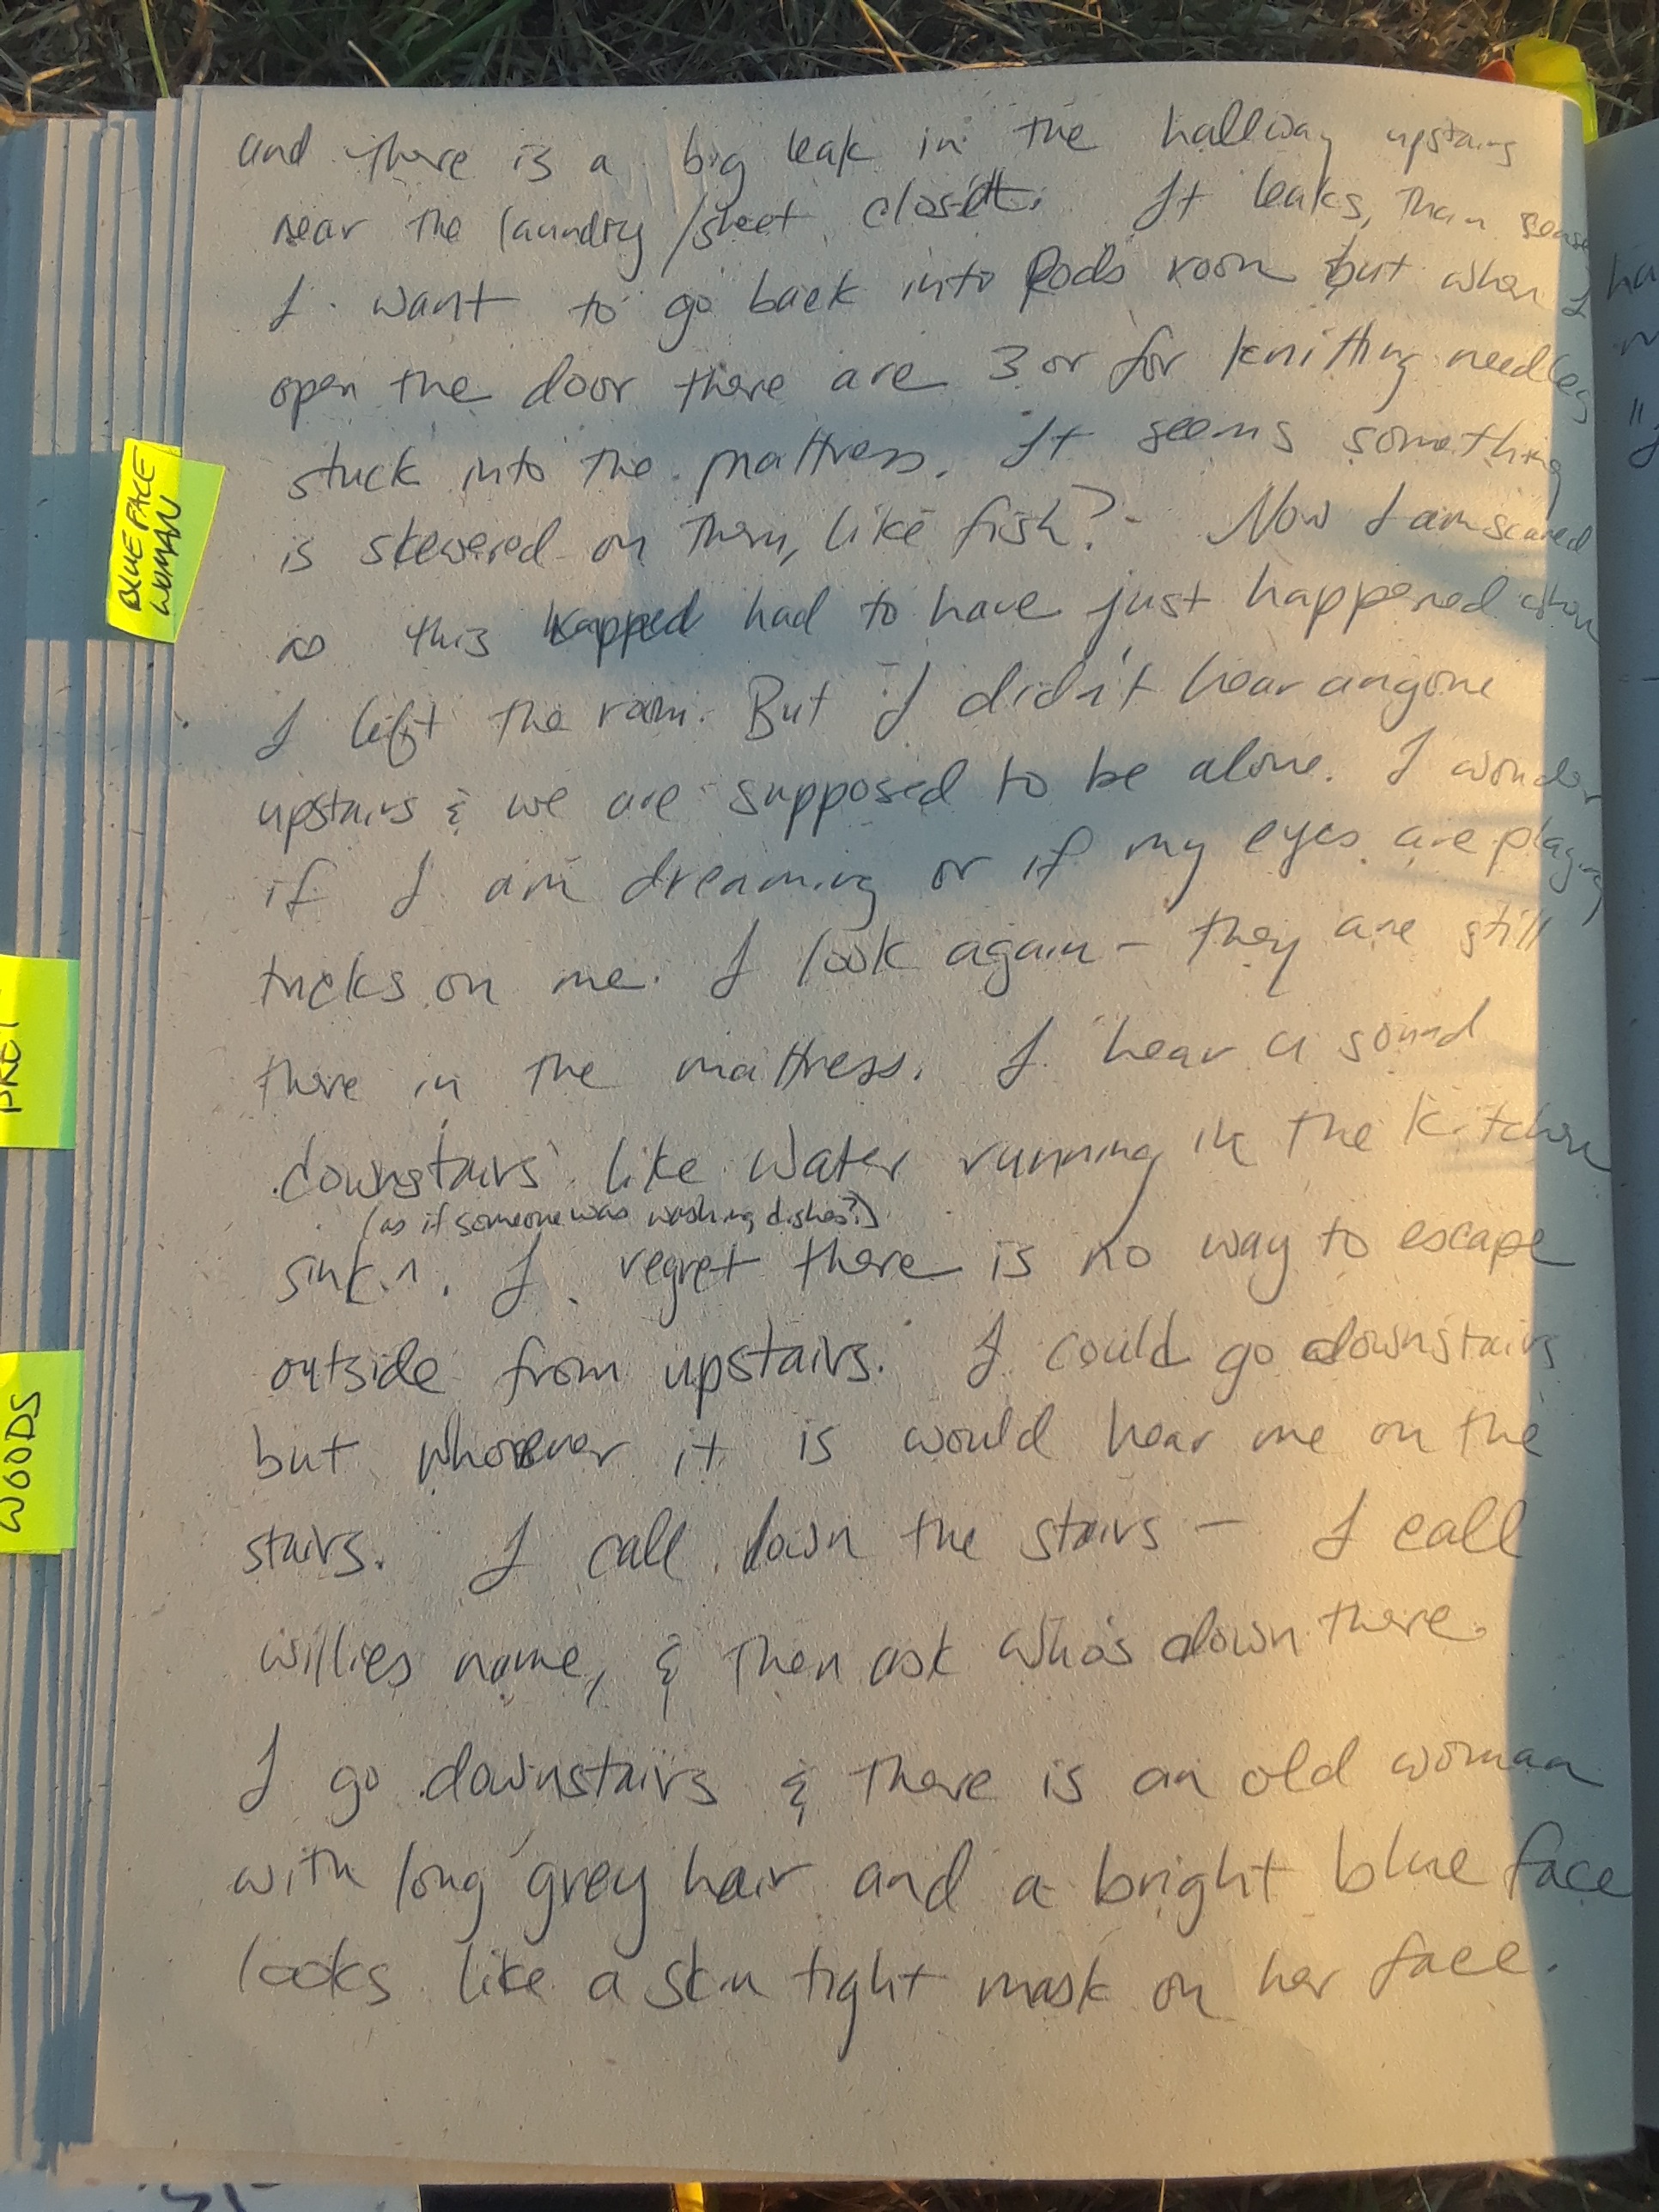 and there is a big leak in the hallway upstairs
near the laundry/sheet closet. It leaks, then
I want to go back into Rods room but when I
open the door there are 3 or for knitting needles
stuck into the mattress. It seems something
is skewered on them, like fish? - Now I am scared
as this had to have just happened when
I left the room. But I didn't hear anyone
upstairs & we are supposed to be alone. I wonder
if I am dreaming or if my eyes are playing
tricks on me. I look again - they are still
there in the mattress. I hear a sound
downstairs like water running in the kitchen
(as if someone was washing dishes?)
sink ^. I regret there is no way to escape
outside from upstairs. I could go downstairs
but whoever it is would hear me on the
stairs. I call down the stairs - I call
willies name, & then ask who's down there.
I go downstairs & there is an old woman
with long grey hair and a bright blue face
looks like a skin tight mask on her face.
BLUE FACE
WOMAN
WOODS